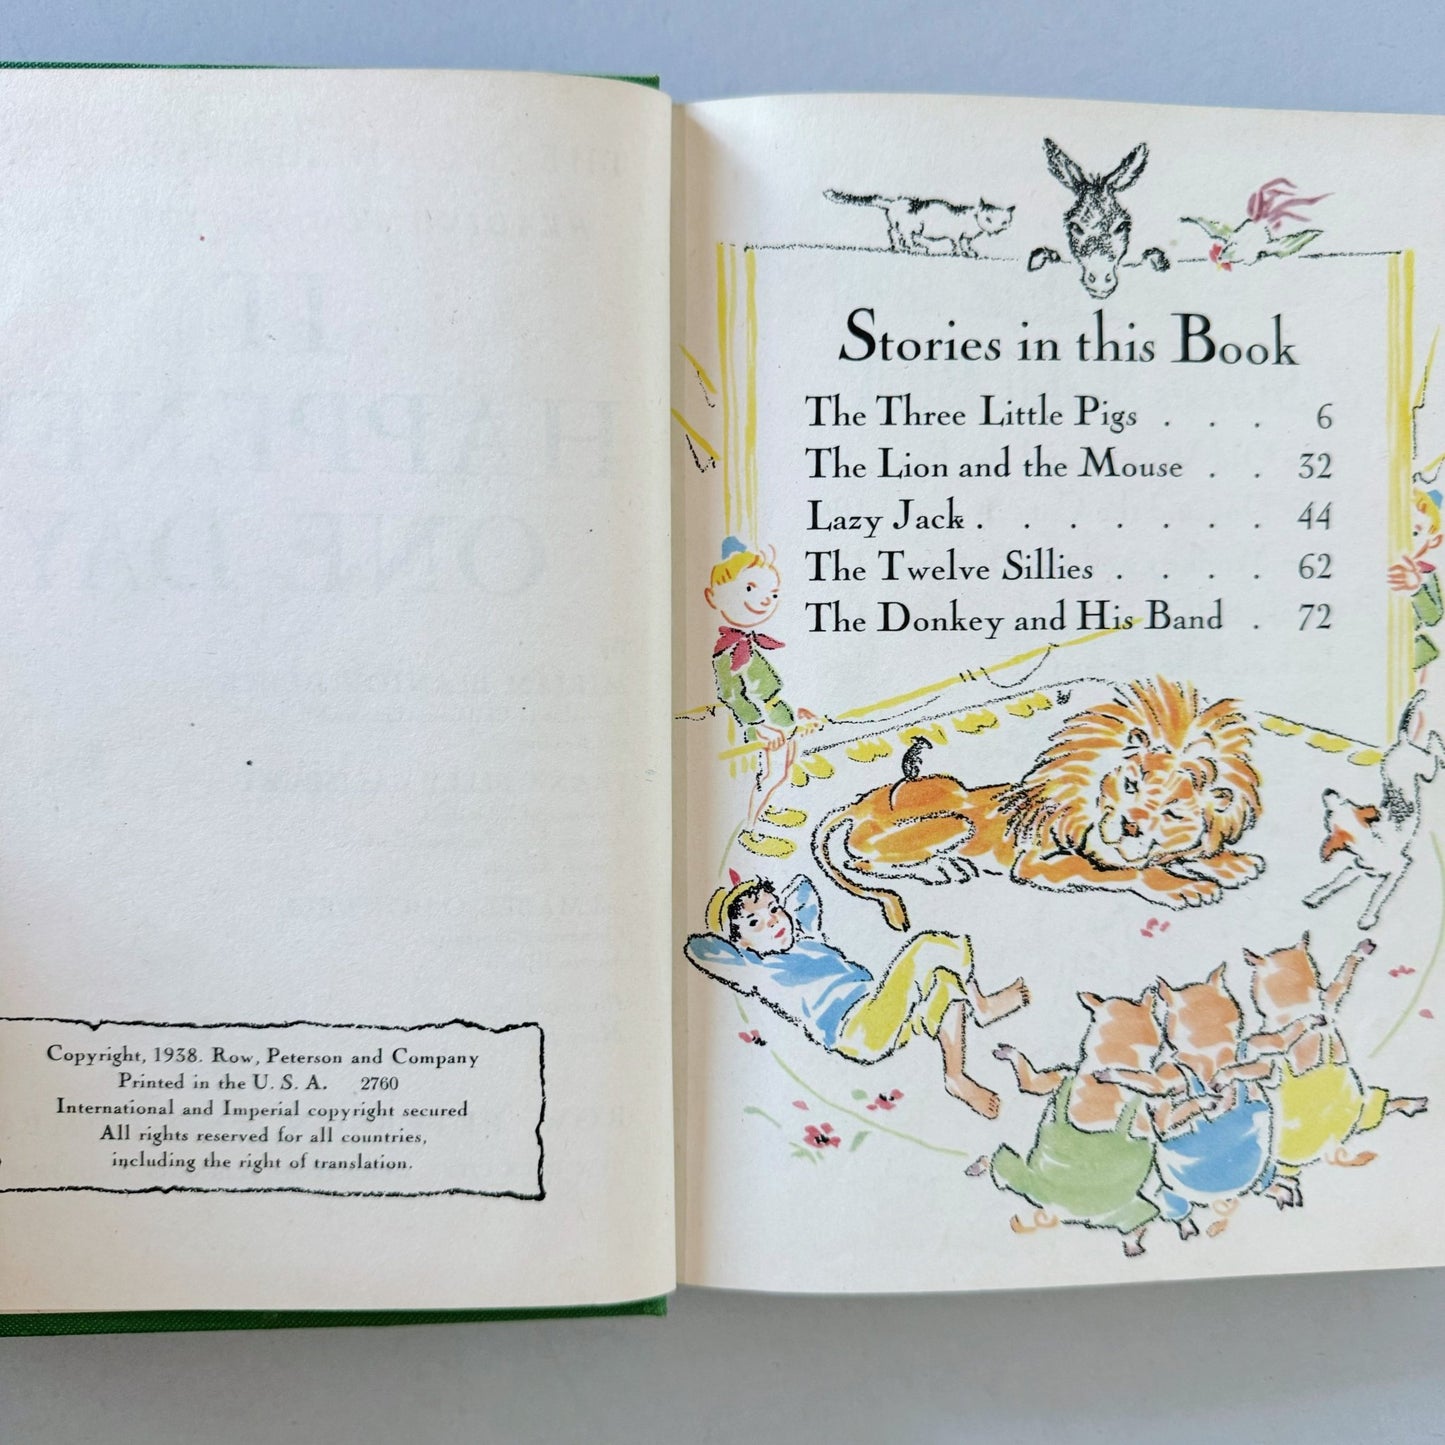 Copyright, 1938. Row, Peterson and Company
Printed in the U. S. A. 2760
International and Imperial copyright secured
All rights reserved for all countries,
including the right of translation.
Stories in this Book
The Three Little Pigs . . . 6
The Lion and the Mouse . . 32
Lazy Jack . . . . . . . 44
The Twelve Sillies . . . . 62
The Donkey and His Band . 72